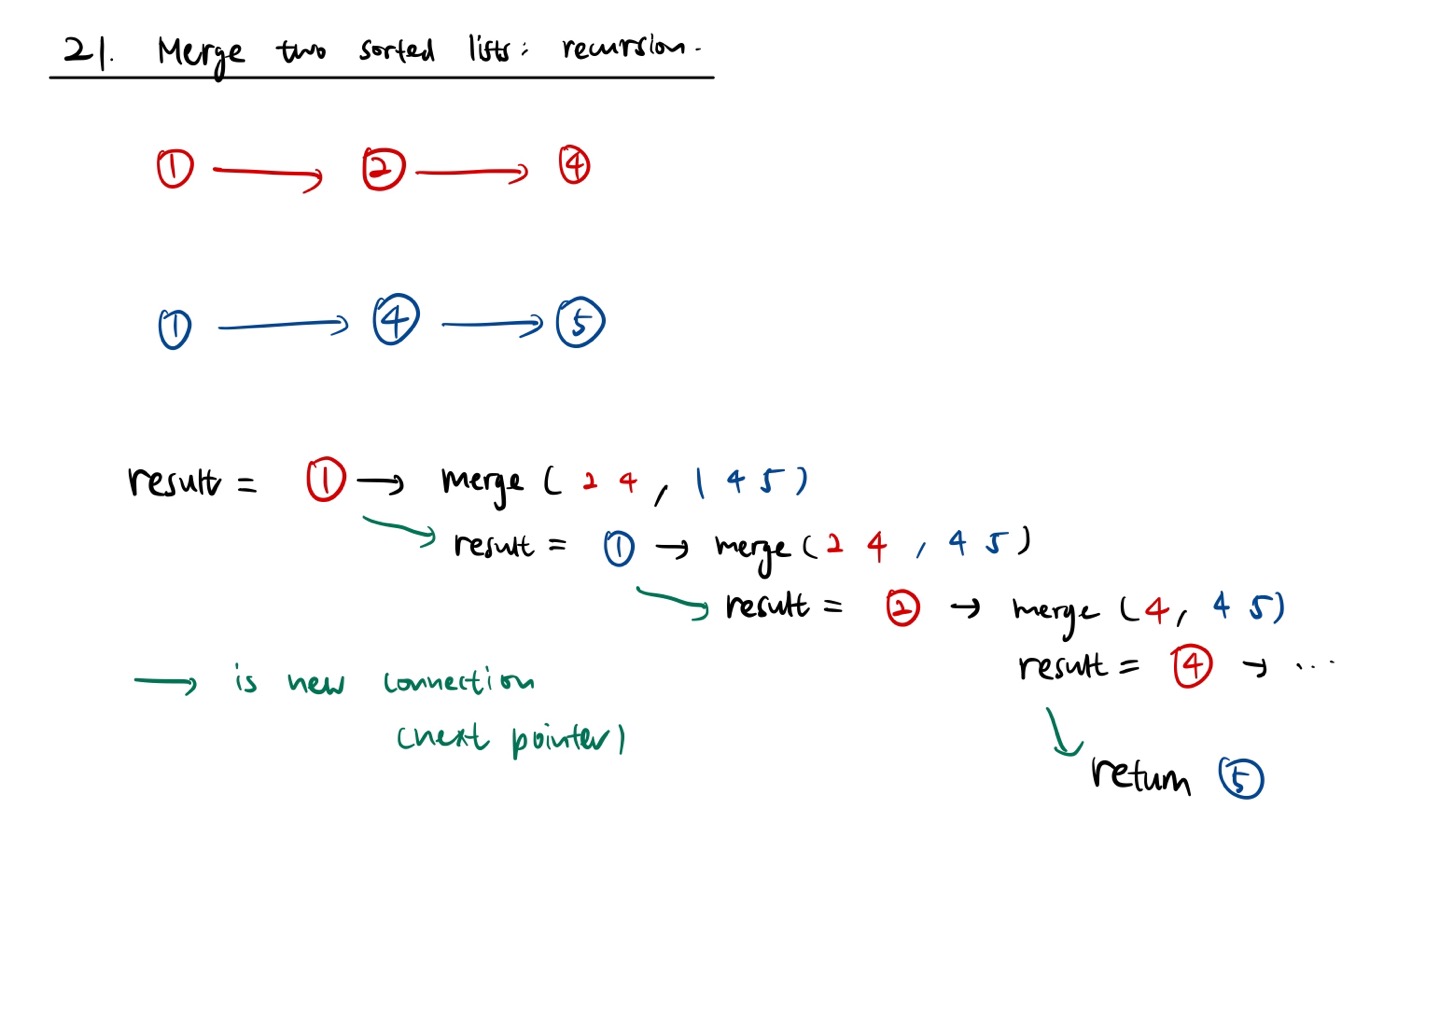 21. Merge two sorted lists: recursion.
1 → 2 → 4
1 → 4 → 5
result = 1 → merge ( 2 4 , 1 4 5 )
result = 1 → merge ( 2 4 , 4 5 )
result = 2 → merge ( 4 , 4 5 )
result = 4 → ...
→ is new connection
(next pointer)
return 5